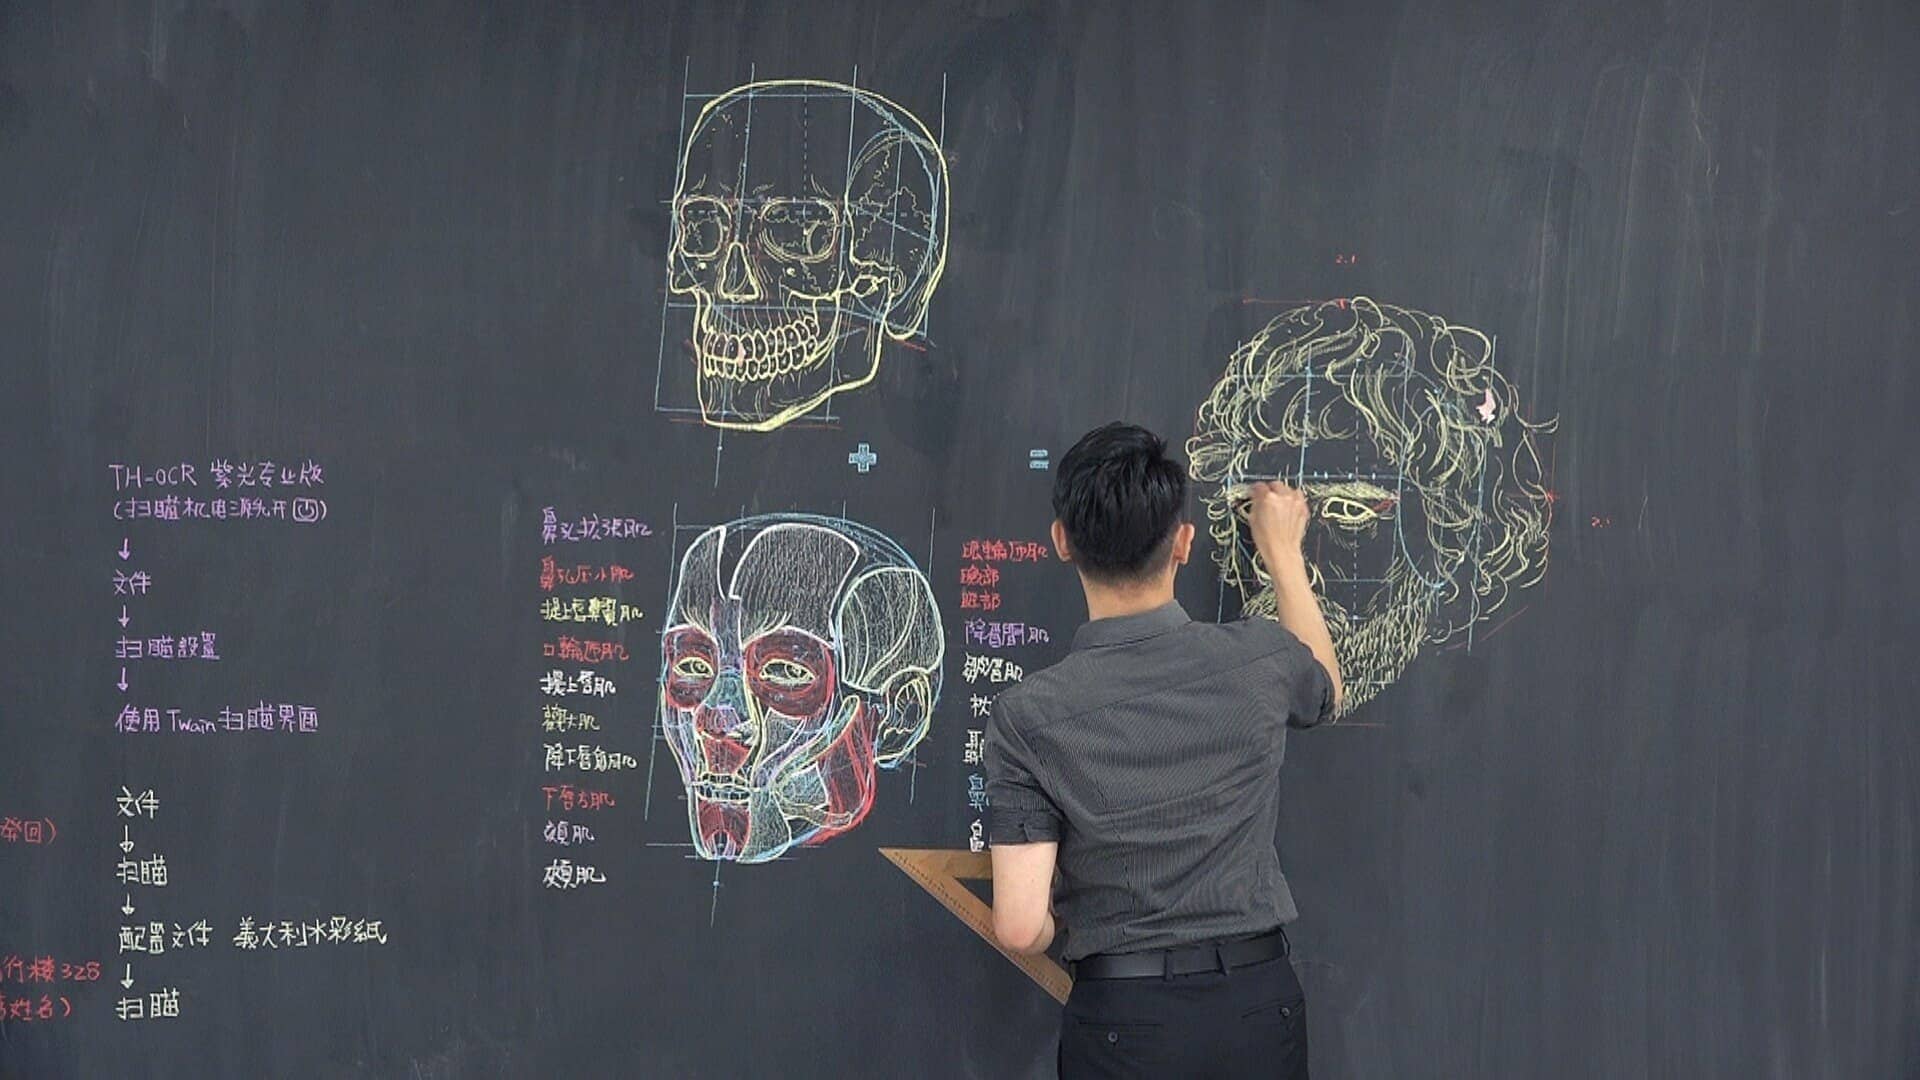 TH-OCR 紫光专业版
(扫瞄机电源先开)
↓
文件
↓
扫瞄設置
↓
使用 Twain 扫瞄界面
文件
↓
扫瞄
↓
配置文件 義大利水彩紙
↓
扫瞄
發回)
行楼328
姓名)
鼻孔扩張肌
鼻孔压小肌
提上唇鼻翼肌
口輪匝肌
提上唇肌
顴大肌
降下唇角肌
下唇方肌
頦肌
頰肌
+
=
眼輪匝肌
瞼部
眶部
降眉間肌
皺眉肌
2.1
2.1